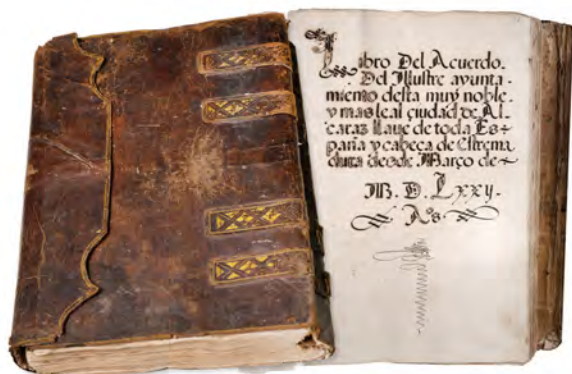 Libro Del Acuerdo.
Del Illustre ayunta-
miento desta muy noble.
y mas leal ciudad de Al-
caraz llave de toda Es+
paña y cabeça de Estrema
dura desde Março de+
M. D. Lxxy.
As.